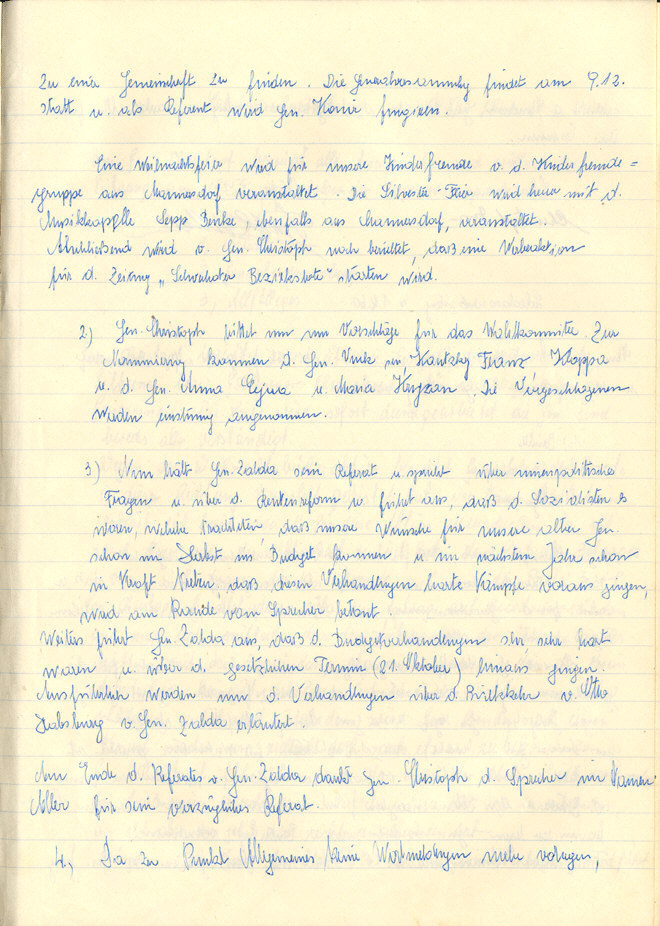 zu einer Gemeinschaft zu finden. Die Generalversammlung findet am 9.12.
statt u. als Referent wird Gen. fungieren.
Eine Weihnachtsfeier wird für unsere Kinderfreunde v. d. Kinderfreunde=
gruppe aus Mannersdorf veranstaltet. Die Silvester-Feier wird heuer mit d.
Musikkapelle Sepp, ebenfalls aus Mannersdorf, veranstaltet.
Abschließend wird v. Gen. Christoph noch berichtet, daß eine Werbeaktion
für d. Zeitung "Schwechater Bezirksbote" starten wird.
2.) Gen. Christoph bittet nun um Vorschläge für das Wahlkomitee. Zur
Nominierung kommen d. Gen. Franz
u. d. Gen. Anna u. Maria. Die Vorgeschlagenen
werden einstimmig angenommen.
3.) Nun hält Gen. Zalda sein Referat u. spricht über innenpolitische
Fragen u. über d. Rentenreform u. führt aus, daß d. Sozialisten es
waren, welche trachteten, daß unsere Wünsche für unsere alten Gen.
schon im Herbst ins Budget kommen u. im nächsten Jahr schon
in Kraft treten, daß diesen Verhandlungen harte Kämpfe voraus gingen,
wird am Rande vom Sprecher betont.
Weiters führt Gen. Zalda aus, daß d. Budgetverhandlungen sehr, sehr hart
waren u. über d. gesetzlichen Termin (21. Oktober) hinaus gingen.
Ausführlich werden nun d. Verhandlungen über d. Rückkehr v. Otto
Habsburg v. Gen. Zalda erläutert.
Am Ende d. Referates v. Gen. Zalda dankt Gen. Christoph d. Sprecher im Namen
Aller für sein vorzügliches Referat.
4.) Da zu Punkt Allgemeines keine Wortmeldungen mehr vorliegen,